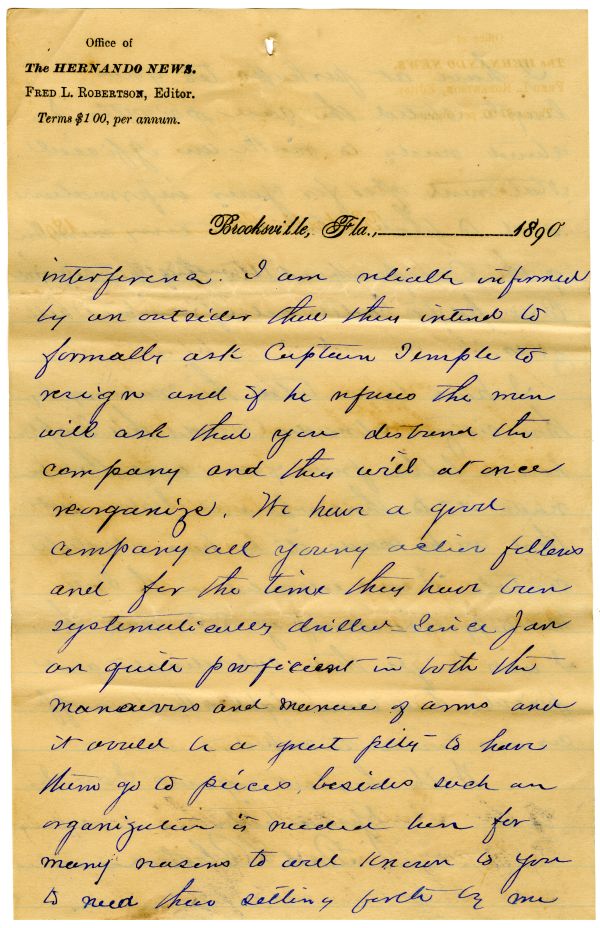 Office of
The HERNANDO NEWS.
FRED L. ROBERTSON, Editor.
Terms $1 00, per annum.
Brooksville, Fla., 1890
interference. I am reliably informed
by an outsider that they intend to
formally ask Captain Temple to
resign and if he refuses the men
will ask that you disband the
company and they will at once
reorganize. We have a good
company all young active fellows
and for the time they have been
systematically drilled - since Jan
are quite proficient in both the
manoevers and manual of arms and
it would be a great pity to have
them go to pieces, besides such an
organization is needed here for
many reasons to well known to you
to need their setting forth by me